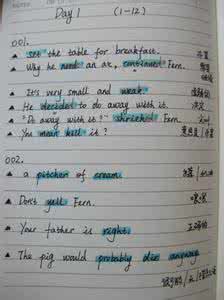 Day 1 (1-12)
001.
▲ set the table for breakfast.
▲ Why he need an ax, continued Fern.
▲ It's very small and weak.
▲ He decided to do away with it. 决定
▲ "Do away with it?" shrieked Fern.
▲ You mean kill it?
002.
▲ a pitcher of cream
▲ Don't yell Fern.
▲ Your father is right.
▲ The pig would probably die anyway